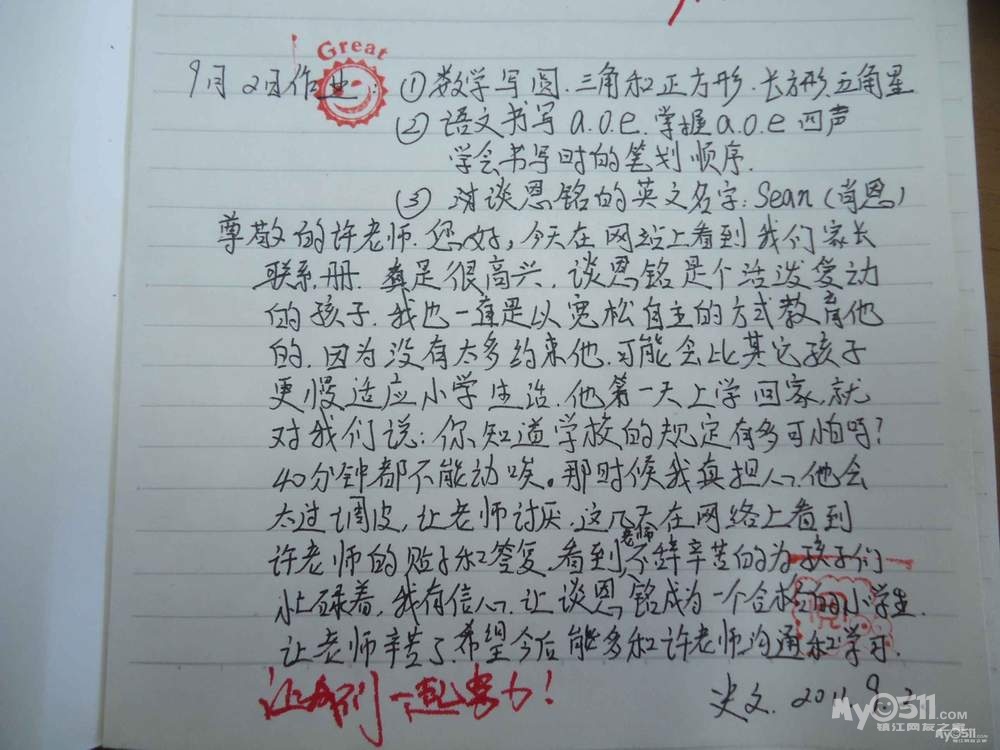 Great
9月2日作业: ①数学写圆.三角和正方形.长方形.五角星
②语文书写a.o.e.掌握a.o.e四声
学会书写时的笔划顺序.
③ 谈恩铭的英文名字: Sean (肖恩)
尊敬的许老师.您好,今天在网站上看到我们家长
联系册.真是很高兴.谈恩铭是个活泼爱动
的孩子.我也一直是以宽松自主的方式教育他
的.因为没有太多约束他.可能会比其它孩子
更慢适应小学生活.他第一天上学回家.就
对我们说:你知道学校的规定有多可怕吗?
40分钟都不能动唉。那时候我真担心他会
太过调皮,让老师讨厌.这几天在网络上看到
许老师的贴子和答复.看到老师不辞辛苦的为孩子们
忙碌着.我有信心.让谈恩铭成为一个合格的小学生.
让老师辛苦了.希望今后能多和许老师沟通和学习.
让我们一起努力!
史文. 2011.9.2
My0511.com
镇江网友之家
My0511.com